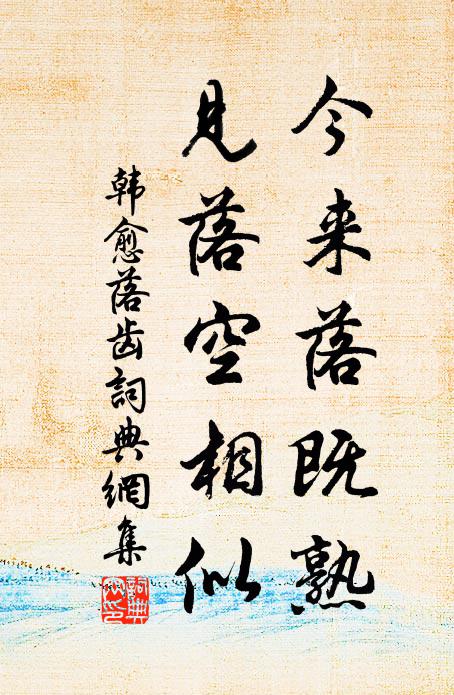 今来落既熟
见落空相似
韩愈落齿詞典網集
詞典